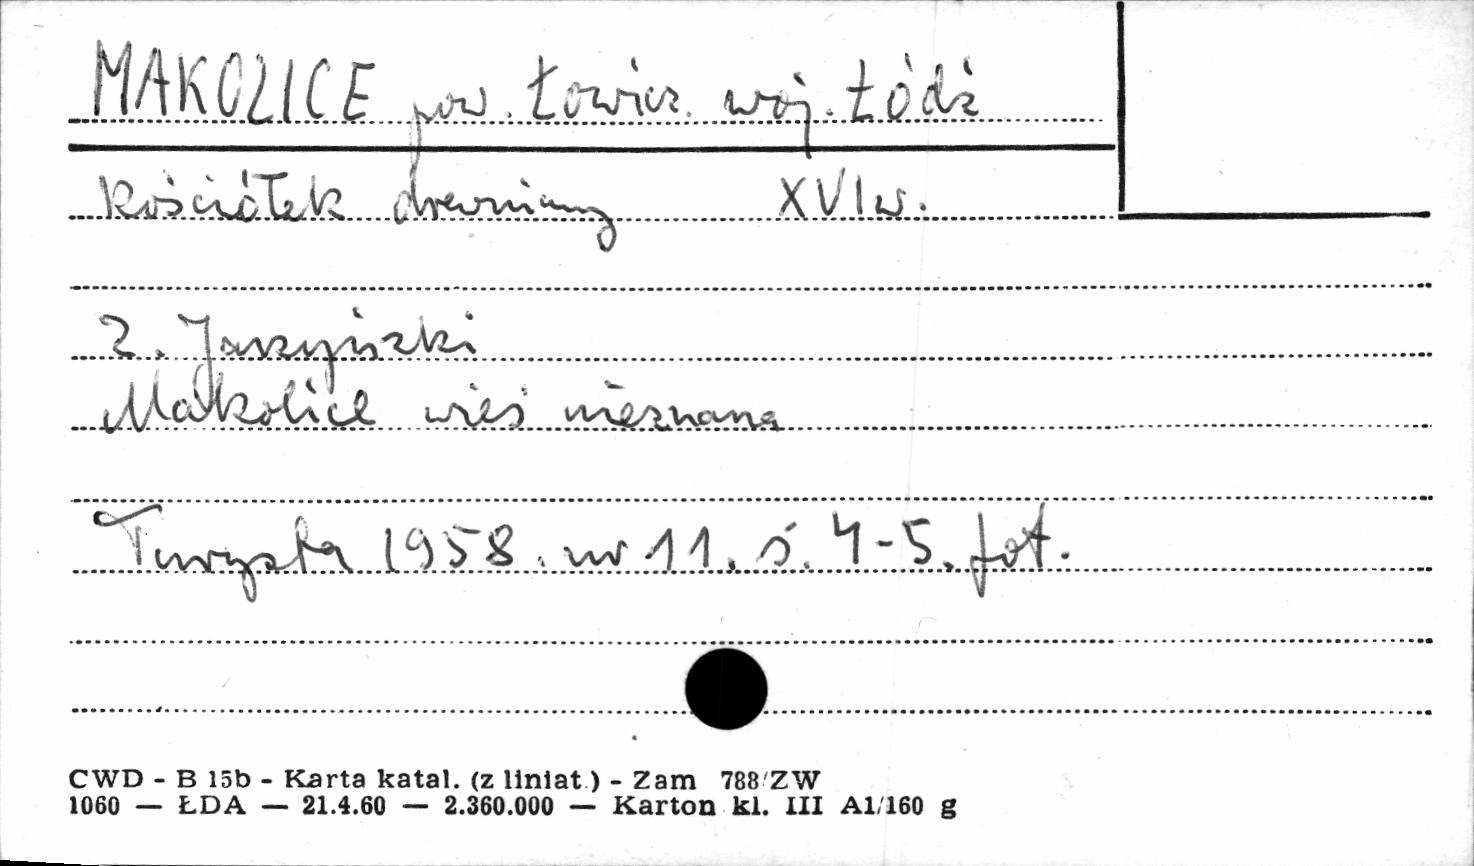 MAKOLICE pow. Łowicz. woj. Łódź
Kościółek drewniany XVI w.
Z. Jarzyński
Makolice wieś nieznana
Turysta 1958. nr 11. s. 4-5. fot.
CWD - B 15b - Karta katal. (z liniat.) - Zam 788/ZW
1060 — ŁDA — 21.4.60 — 2.360.000 — Karton kl. III A1/160 g